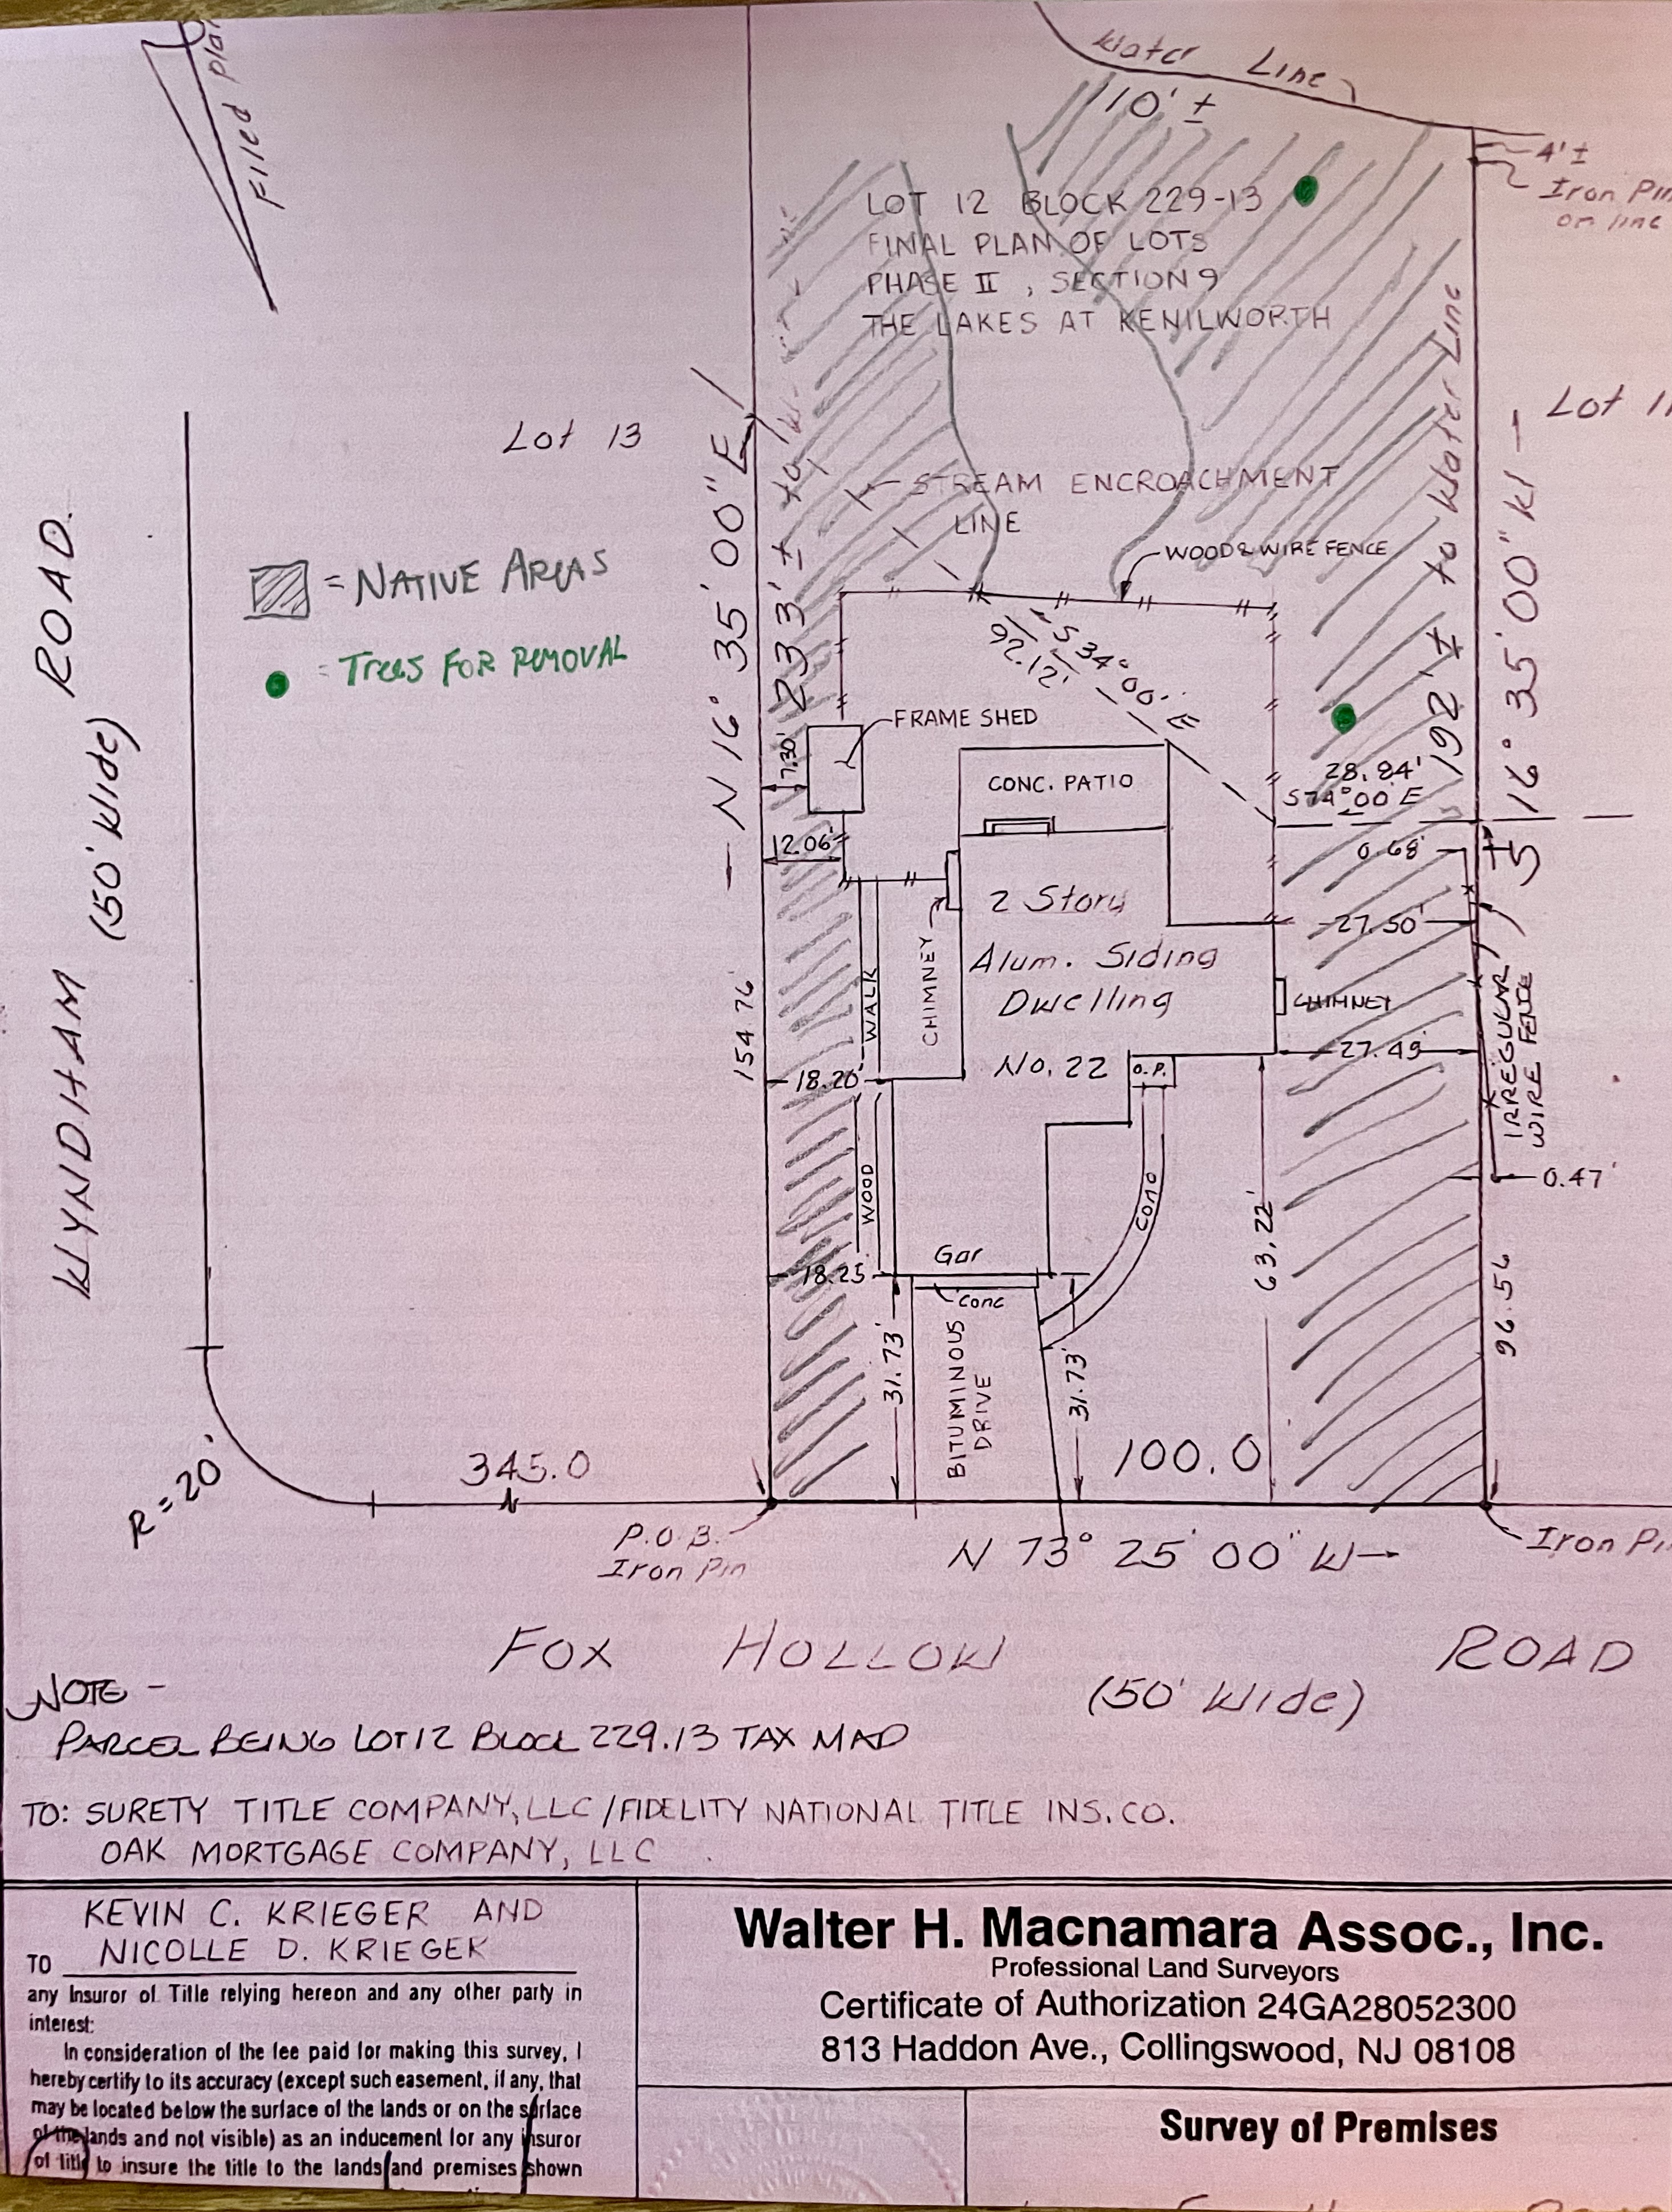 Filed Plan
Water Line
10' ±
4' ±
Iron Pin
on line
LOT 12 BLOCK 229-13
FINAL PLAN OF LOTS
PHASE II , SECTION 9
THE LAKES AT KENILWORTH
Lot 13
Lot 11
STREAM ENCROACHMENT
LINE
WOOD & WIRE FENCE
= NATIVE AREAS
= TREES FOR REMOVAL
WYNDHAM (50' Wide) ROAD
N 16° 35' 00" E
233' ± to
192' ± to Water Line
S 16° 35' 00" W
S 34° 00' E
92.12'
FRAME SHED
7.30'
CONC. PATIO
28.84'
S 74° 00' E
12.06'
0.68'
2 Story
27.50'
Alum. Siding
Dwelling
CHIMNEY
CHIMNEY
WALK
154.76
IRREGULAR
WIRE FENCE
27.49
No. 22
O.P.
18.20'
WOOD
0.47'
Conc
63.22'
Gar
18.25
Conc
96.56
31.73'
BITUMINOUS
DRIVE
31.73'
100.0
345.0
R = 20'
P.O.B.
Iron Pin
N 73° 25' 00" W
Iron Pin
FOX HOLLOW ROAD
(50' Wide)
NOTE -
PARCEL BEING LOT 12 BLOCK 229.13 TAX MAP
TO: SURETY TITLE COMPANY, LLC / FIDELITY NATIONAL TITLE INS. CO.
OAK MORTGAGE COMPANY, LLC
KEVIN C. KRIEGER AND
TO NICOLLE D. KRIEGER
any Insuror of Title relying hereon and any other party in
interest:
In consideration of the fee paid for making this survey, I
hereby certify to its accuracy (except such easement, if any, that
may be located below the surface of the lands or on the surface
of the lands and not visible) as an inducement for any insuror
of title to insure the title to the lands and premises shown
Walter H. Macnamara Assoc., Inc.
Professional Land Surveyors
Certificate of Authorization 24GA28052300
813 Haddon Ave., Collingswood, NJ 08108
Survey of Premises